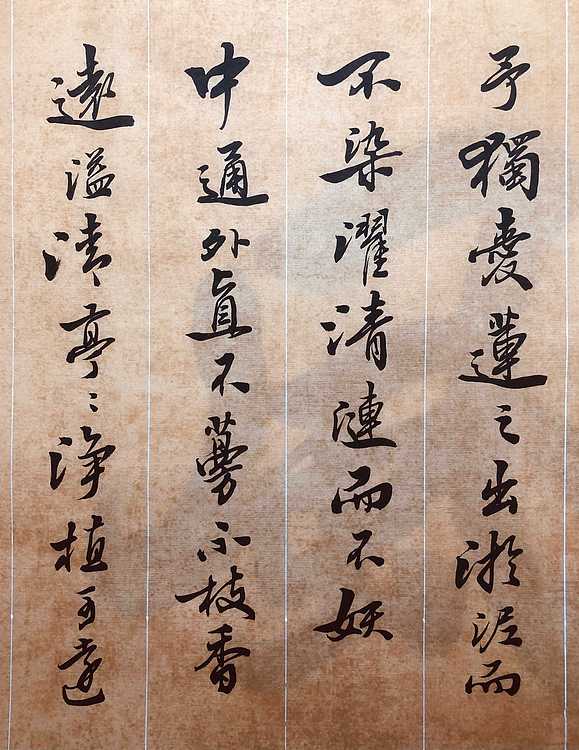 予獨愛蓮之出淤泥而
不染濯清漣而不妖
中通外直不蔓不枝香
遠溢清亭〻淨植可遠